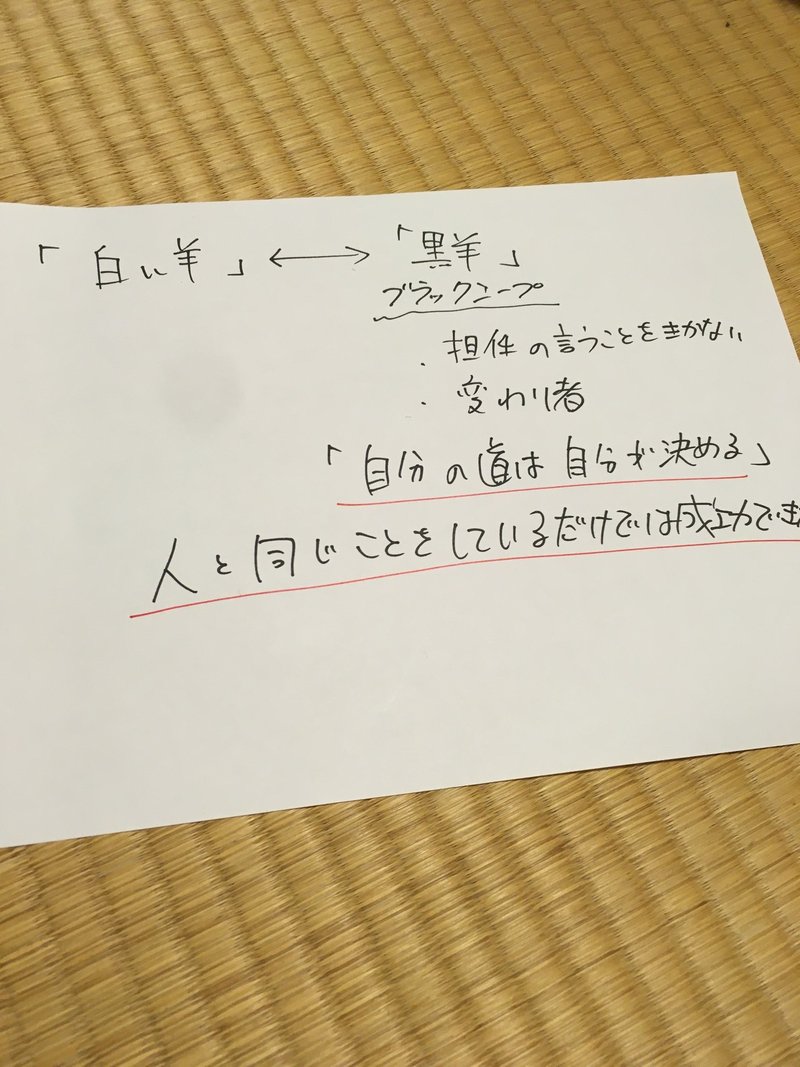 「白い羊」⟷「黒羊」
ブラックシープ
・担任の言うことをきかない
・変わり者
「自分の道は自分が決める」
人と同じことをしているだけでは成功でき